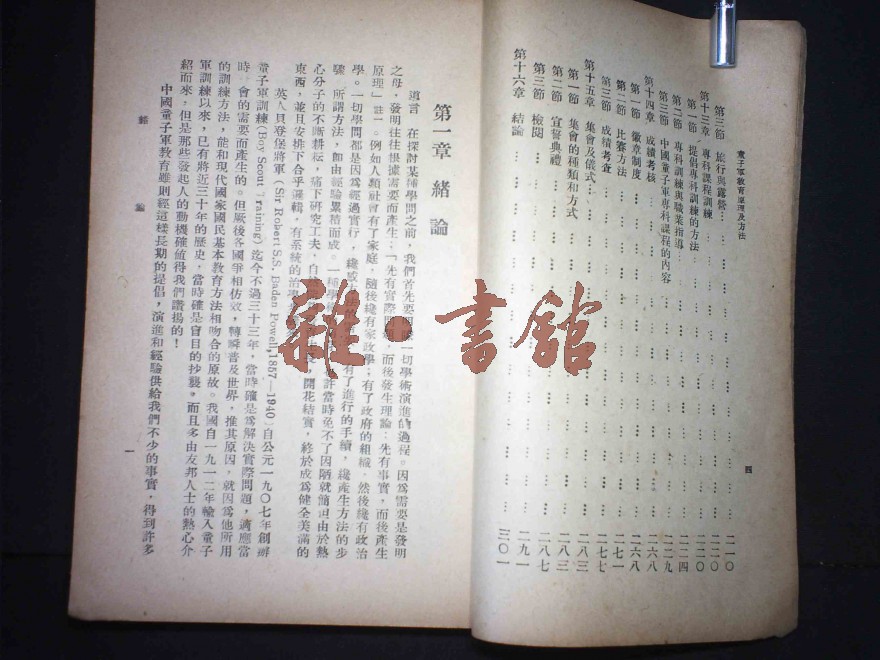 童子軍教育原理及方法
第三節 旅行與露營 二一〇
第十三章 專科課程訓練 二二〇
第一節 提倡專科訓練的方法 二二〇
第二節 專科訓練與職業指導 二二四
第三節 中國童子軍專科課程的內容 二二九
第十四章 成績考核 二六八
第一節 徽章制度 二六八
第二節 比賽方法 二七一
第三節 成績考查 二七七
第十五章 集會及儀式 二八三
第一節 集會的種類和方式 二八三
第二節 宣誓典禮 二八七
第三節 檢閱 二九一
第十六章 結論 三〇一
四
第一章 緒論
導言 在探討某種學問之前,我們首先要 一切學術演進的過程。因為需要是發明
之母,發明往往根據需要而產生;「先有實際問題,而後發生理論;先有事實,而後產生
原理」註一。例如人類社會有了家庭,隨後纔有家政學;有了政府的組織,然後纔有政治
學。一切學問都是因為經過實行,纔 有了進行的手續,纔產生方法的步
驟,所謂方法,卽由經驗累積而成。一種學 許當時免不了因陋就簡但由於熱
心分子的不斷耕耘,痛下研究工夫,自 開花結實,終於成為健全美滿的
東西,並且安排下合乎邏輯,有系統的治學
英人貝登堡將軍 (Sir Robert S.S. Baden Powell, 1857—1940) 自公元一九〇七年創辦
童子軍訓練(Boy Scout Training)迄今不過三十三年,當時確是為解決實際問題,適應當
時 會的需要而產生的。但厥後各國爭相仿效,轉瞬普及世界,推其原因,就因為他所用
的訓練方法,能和現代國家國民基本教育方法相吻合的原故。我國自一九一二年輸入童子
軍訓練以來,已有將近三十年的歷史,當時確是盲目的抄襲。而且多由友邦人士的熱心介
紹而來,但是那些發起人的動機確值得我們讚揚的!
中國童子軍教育雖則經這樣長期的提倡,演進和經驗供給我們不少的事實,得到許多
一
雜·書館